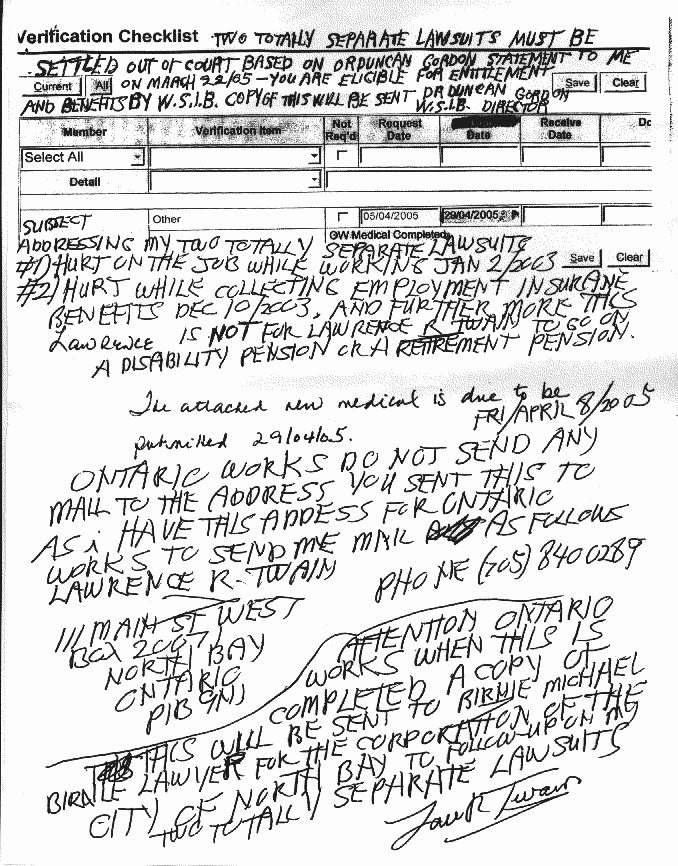 Verification Checklist TWO TOTALLY SEPARATE LAWSUITS MUST BE
SETTLED OUT OF COURT BASED ON DR DUNCAN GORDON STATEMENT TO ME
Current All ON MARCH 22/05 - YOU ARE ELIGIBLE FOR ENTITLEMENT Save Clear
AND BENEFITS BY W.S.I.B. COPY OF THIS WILL BE SENT DR DUNCAN GORDON
W.S.I.B. DIRECTOR
Member Verification Item Not Req'd Request Date Date Receive Date Do
Select All
Detail
SUBJECT Other 05/04/2005 29/04/2005
GW Medical Completed
ADDRESSING MY TWO TOTALLY SEPARATE LAWSUITS
#1) HURT ON THE JOB WHILE WORKING JAN 2/2003 Save Clear
#2) HURT WHILE COLLECTING EMPLOYMENT INSURANE
BENEFITS DEC 10/2003, AND FURTHER MORE THIS
Lawrence IS NOT FOR LAWRENCE R TWAIN TO GO ON
A DISABILITY PENSION OR A RETIREMENT PENSION.
The attached new medical is due to be
FRI/APRIL 8/2005
submitted 29/04/05.
ONTARIO WORKS DO NOT SEND ANY
MAIL TO THE ADDRESS YOU SENT THIS TO
AS i HAVE THIS ADDESS FOR ONTARIO
WORKS TO SEND ME MAIL AS FOLLOWS
LAWRENCE R. TWAIN PHONE (705) 840 0289
111 MAIN ST WEST
BOX 20071
NORTH BAY
ONTARIO
P1B 9N1
ATTENTION ONTARIO
WORKS WHEN THIS IS
COMPLETED A COPY OF
THIS WILL BE SENT TO BIRNIE MICHAEL
BIRNIE LAWYER FOR THE CORPORATION OF THE
CITY OF NORTH BAY TO FOLLOW-UP ON MY
TWO TOTALLY SEPARATE LAWSUITS